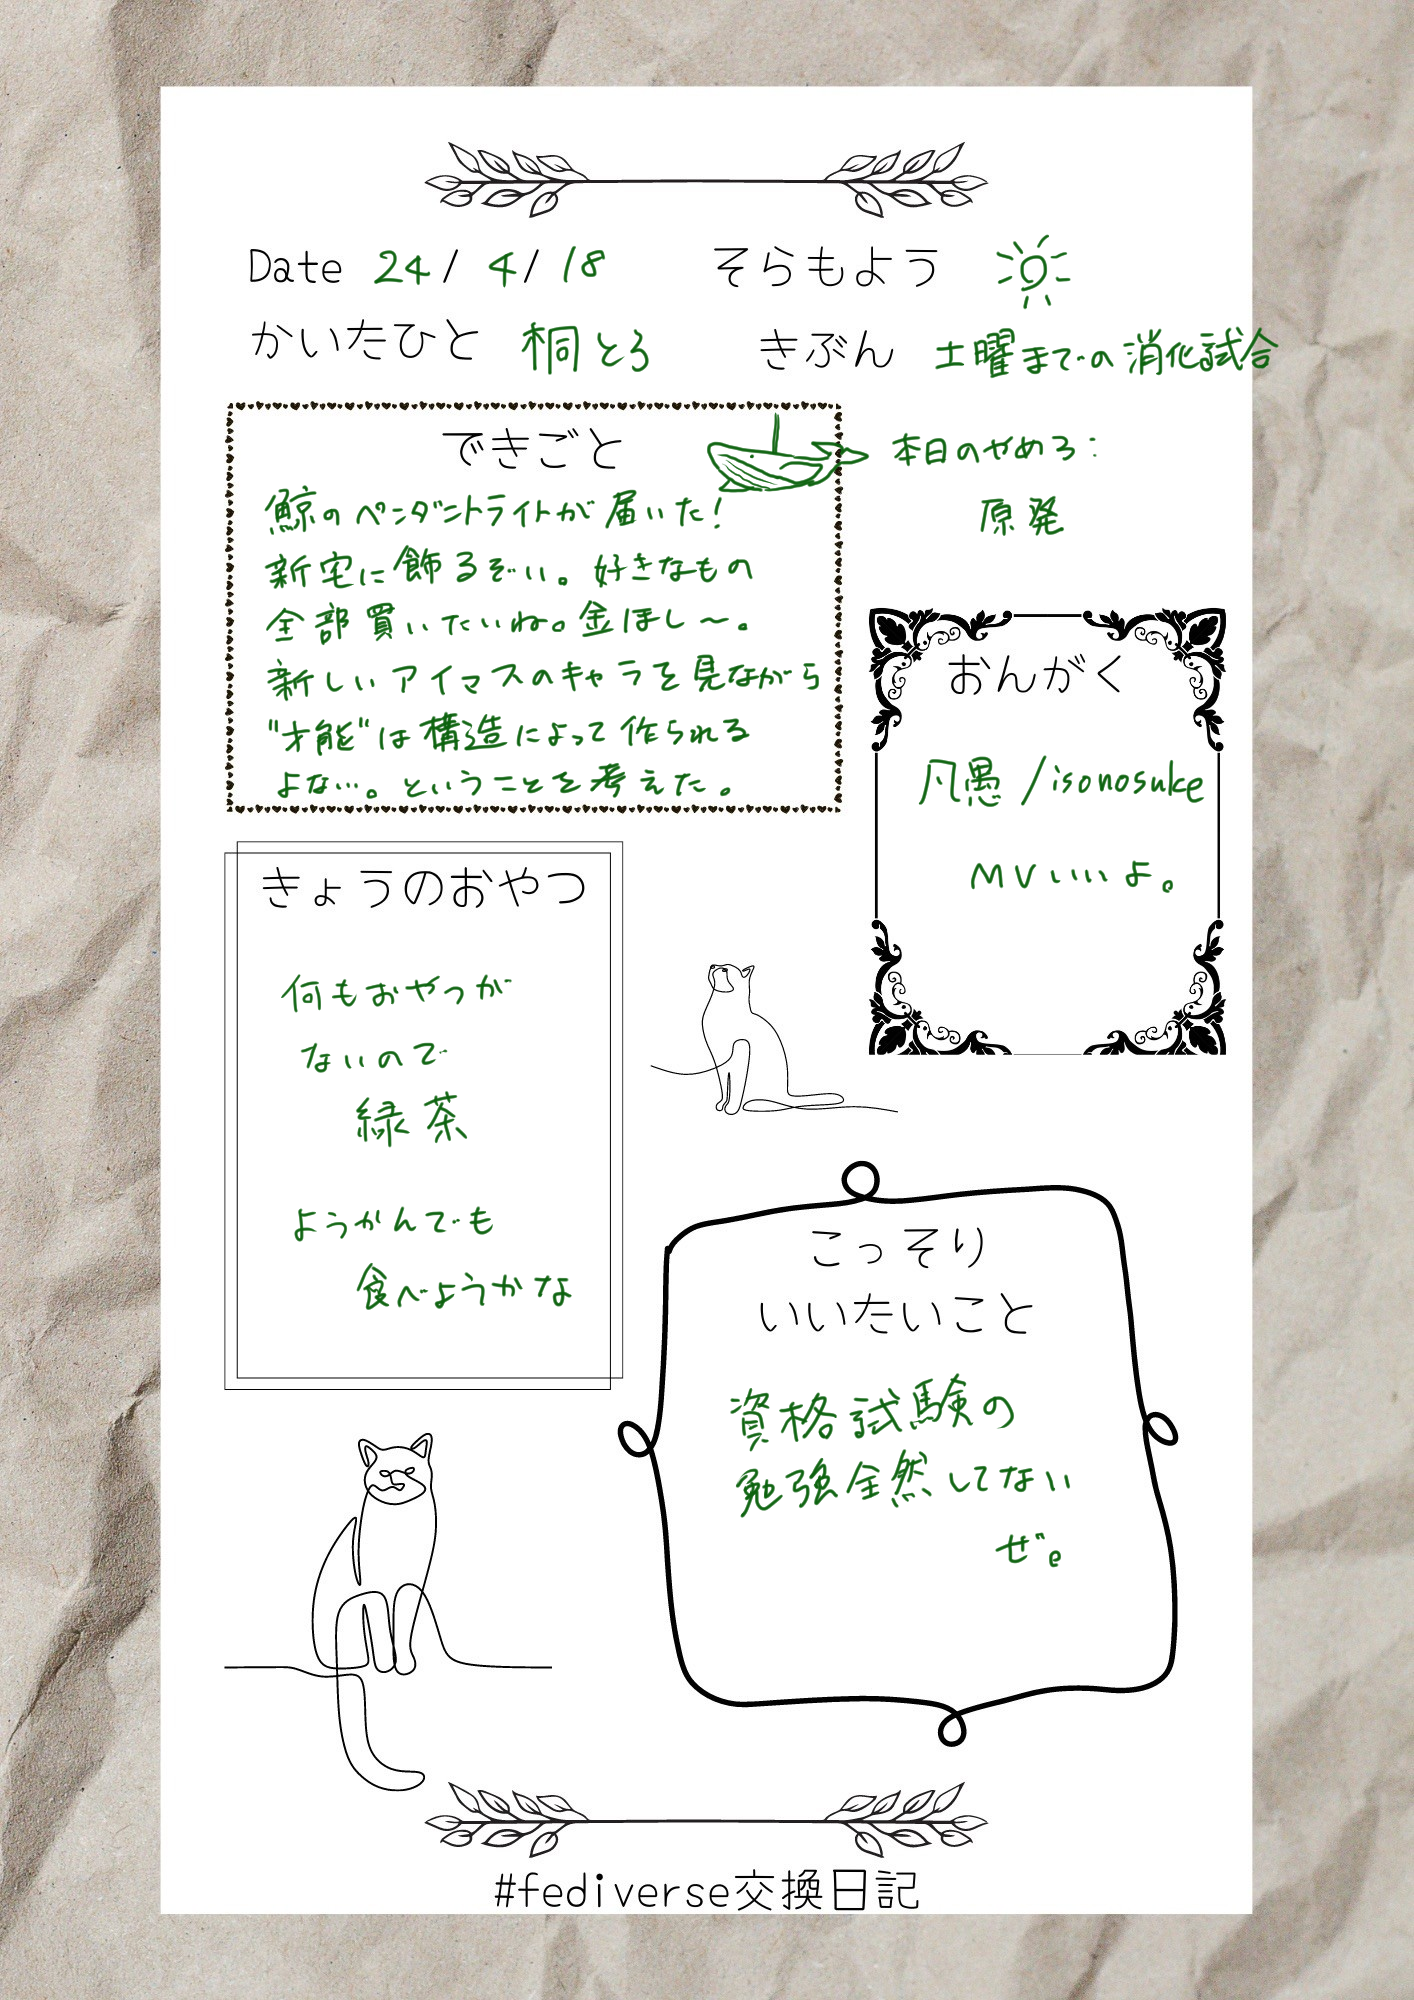 Date 24/4/18
そらもよう
かいたひと 桐とろ
きぶん 土曜までの消化試合
できごと
鯨のペンダントライトが届いた!
新宅に飾るぞい。好きなもの
全部買いたいね。金ほし〜。
新しいアイマスのキャラを見ながら
"才能"は構造によって作られる
よな…。ということを考えた。
本日のやめろ:
原発
おんがく
凡愚/isonosuke
MVいいよ。
きょうのおやつ
何もおやつが
ないので
緑茶
ようかんでも
食べようかな
こっそり
いいたいこと
資格試験の
勉強全然してない
ぜ。
#fediverse交換日記